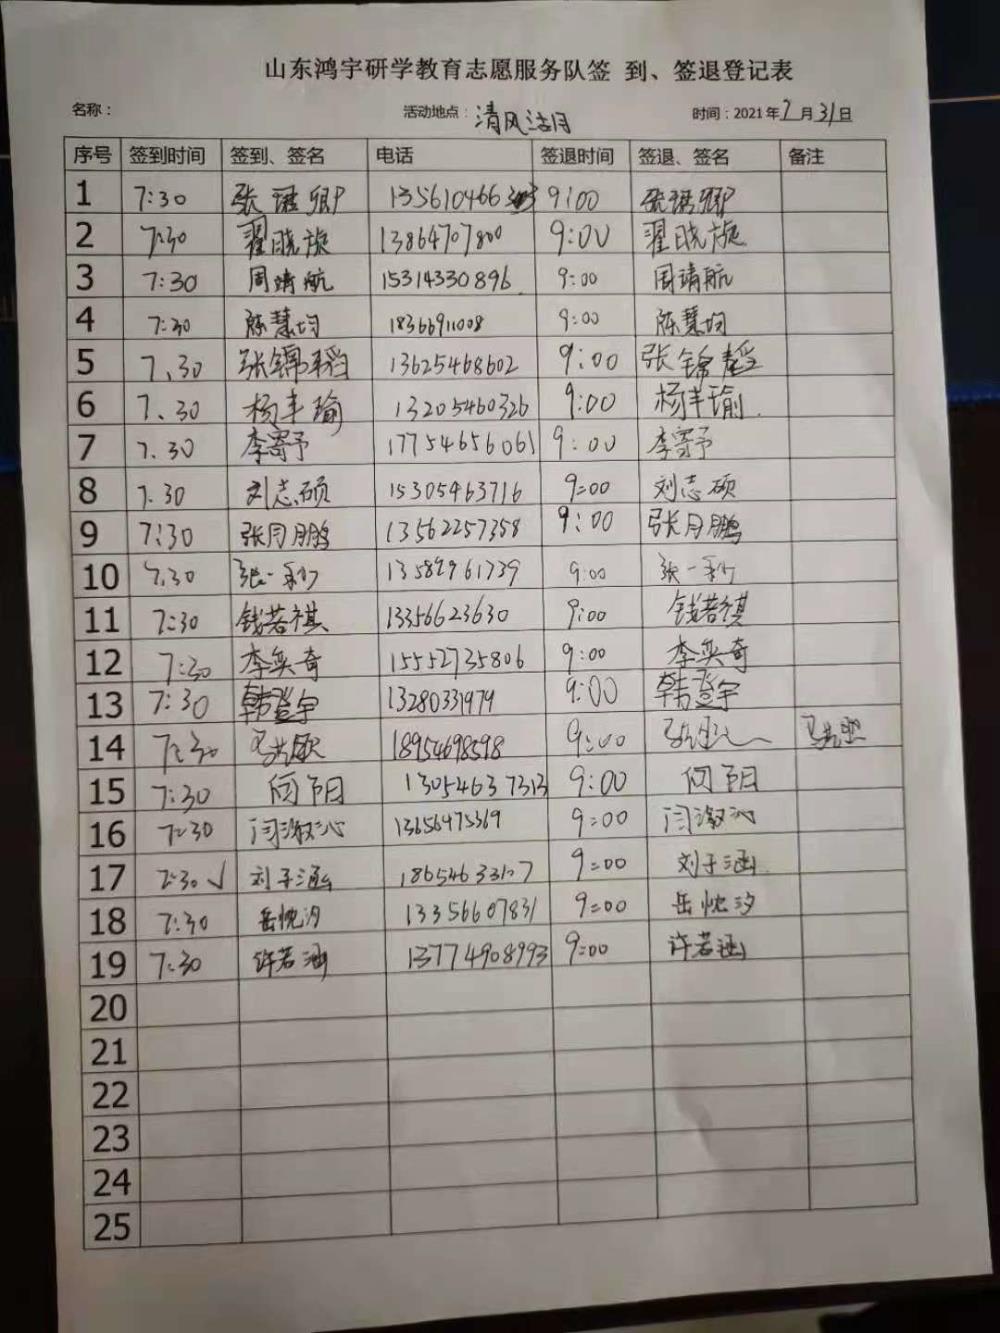 山东鸿宇研学教育志愿服务队签 到、签退登记表
名称： 活动地点：清风 时间：2021年7月31日
序号 签到时间 签到、签名 电话 签退时间 签退、签名 备注
1 7:30 张 卿 135610466 9:00 张 卿
2 7:30 翟晓旋 13864707800 9:00 翟晓旋
3 7:30 周靖航 15314330896 9:00 周靖航
4 7:30 陈慧均 18366911008 9:00 陈慧均
5 7.30 张锦韬 13625468602 9:00 张锦韬
6 7.30 杨丰瑜 13205460326 9:00 杨丰瑜
7 7.30 李寄予 17754656061 9:00 李寄予
8 7.30 刘志硕 15305463716 9:00 刘志硕
9 7:30 张月鹏 13562257358 9:00 张月鹏
10 7.30 张一 13589961739 9:00 张一
11 7:30 钱若祺 13356623630 9:00 钱若祺
12 7:30 李奕奇 15552735806 9:00 李奕奇
13 7:30 韩登宇 13280331979 9:00 韩登宇
14 7:30 18954698598 9:00
15 7:30 向阳 13054637313 9:00 向阳
16 7:30 闫淑沁 13656475369 9:00 闫淑沁
17 7:30 刘子涵 18654633107 9:00 刘子涵
18 7:30 岳忱汐 13356607831 9:00 岳忱汐
19 7:30 许若涵 13774908993 9:00 许若涵
20
21
22
23
24
25